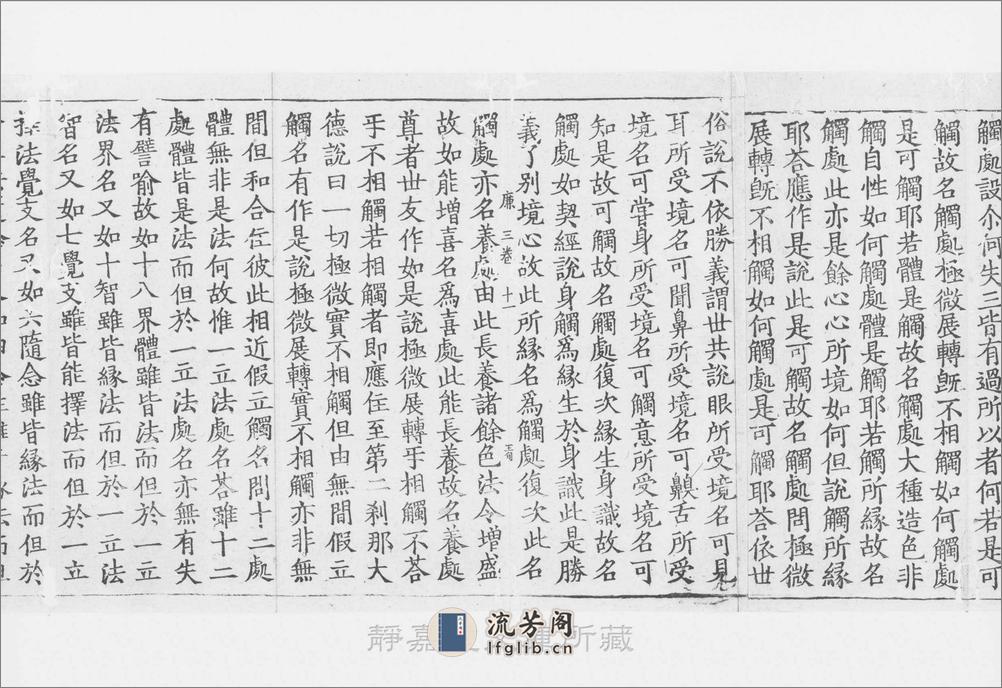 觸處設尒何失三皆有過所以者何若是可
觸故名觸處極微展轉旣不相觸如何觸處
是可觸耶若體是觸故名觸處大種造色非
觸自性如何觸處體是觸耶若觸所緣故名
觸處此亦是餘心心所境如何但說觸所緣
耶荅應作是說此是可觸故名觸處問極微
展轉旣不相觸如何觸處是可觸耶荅依世
俗說不依勝義謂世共說眼所受境名可見
耳所受境名可聞鼻所受境名可齅舌所受
境名可甞身所受境名可觸意所受境名可
知是故可觸故名觸處復次緣生身識故名
觸處如契經說身觸爲緣生於身識此是勝
義了別境心故此所緣名爲觸處復次此名
廉 三卷 十一
觸處亦名養處由此長養諸餘色法令增盛
故如能增喜名爲喜處此能長養故名養處
尊者世友作如是說極微展轉乎相觸不荅
乎不相觸若相觸者即應住至第二剎那大
德說曰一切極微實不相觸但由無間假立
觸名有作是說極微展轉實不相觸亦非無
間但和合住彼此相近假立觸名問十二處
體無非是法何故惟一立法處名荅雖十二
處體皆是法而但於一立法處名亦無有失
有譬喻故如十八界體雖皆法而但於一立
法界名又如十智雖皆緣法而但於一立法
智名又如七覺支雖皆能擇法而但於一立
擇法覺支名又如六隨念雖皆緣法而但於
靜嘉 所藏
流芳阁
lfglib.cn